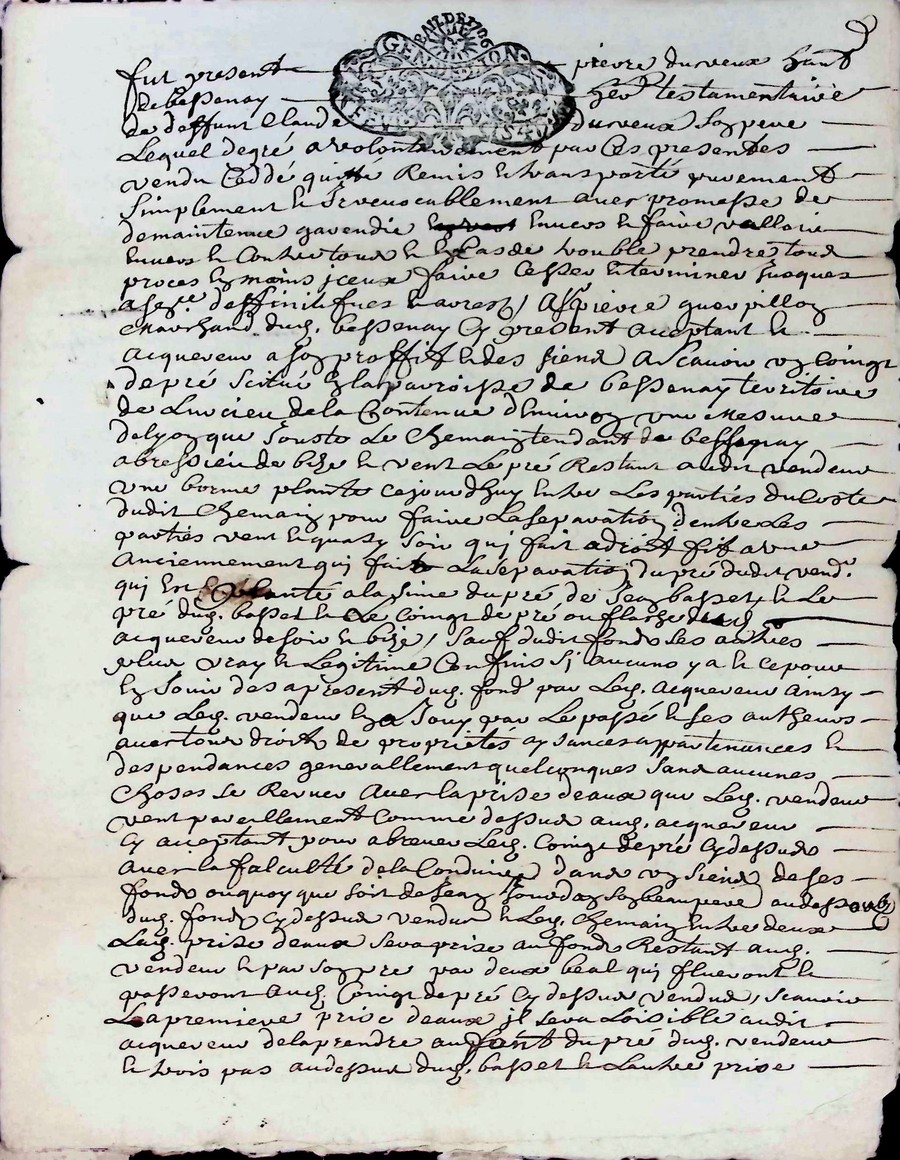 GEN. DE LION
fut present pierre durveux habt
de bessenay her testamentaire
de deffunt Claude durveux son pere
Lequel degré a volontairement par ces presentes
vendu Ceddé quitté Remis et transporté purement
Simplement et Irrevocablement avec promesse de
demaintenue garendie envers et faire valloir
Envers et Contre tous et En Cas de trouble prendre tous
proces En mains iceux faire Cesser et terminer Jusques
a sence deffinitifves et arrest / A Sr pierre guerpillon
Marchand dud. bessenay Cy present acceptant et
acquereur a son proffit et des siens A Scavoir un Coingt
de pré Scitué En la parroisse de bessenay territoire
de Lurcieu de la Contenue denviron une mesure
de lyon que Jouste Le Chemain tendant de bessenay
a bressieu de bize et vent Le pré Restant audit vendeur
une borne plante cejourdhuy Entre Les parties du Coste
dudit Chemain pour faire La separation dentre Les
parties vent Et quasy soir qui fait a droit fil a une
anciennement qui fait La separation du pré dudit vendr
qui Est plante a la sime du pré de Jean basset et Le
pré dud. basset et Le Coingt de pré ou flache dud.
acquereur de soir et bize / Sauf dudit fonds Les autres
plus vray et Legitime Confins Si aucuns y a et ce pour
En Jouir des a present dud. fond par Led. acquereur ainsy
que Led. vendeur En a Jouy par Le passé et ses autheurs
avec tous droits de proprietés aysances appartenances et
despendances generallement quelconques Sans aucunes
Choses Se Reserver avec la prise deaux que Led. vendeur
vent pareillement Comme dessus aud. acquereur
Cy acceptant pour abreuer Led. Coingt de pré Cy dessus
avec la falculté de la Conduire dans un siens de ses
fonds ou quoy que soit de Jean son beaupere au dessous
dud. fonds Cy dessus vendu et Led. Chemain Entre deux
Lad. prise deaux Sera prise au fonds Restant aud.
vendeur et par son pre par deux beal qui flueront et
passeront aud. Coingt de pré Cy dessus vendus, scavoir
La premiere prise deaux il Sera Loisible audit
acquereur de la prendre au du pré dud. vendeur
et trois pas au dessus dud. basset et Lautre prise